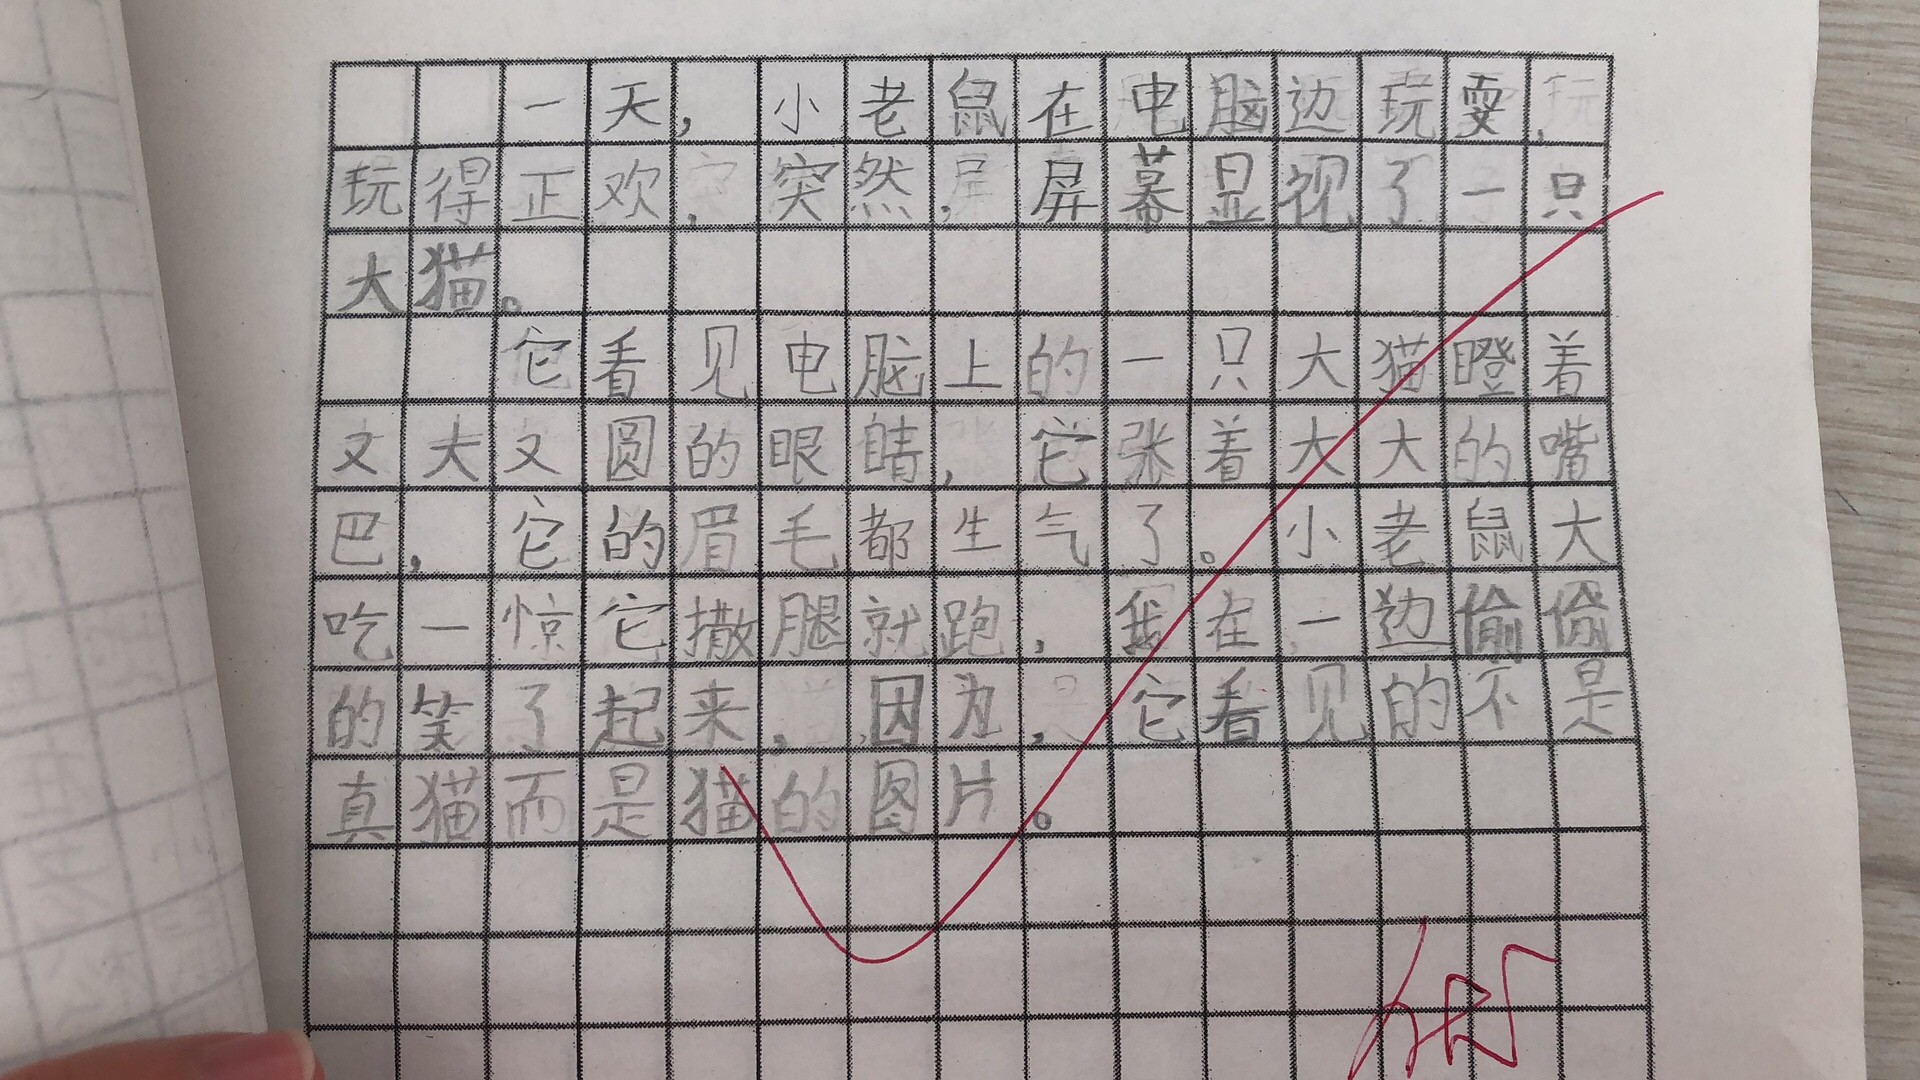 一天，小老鼠在电脑边玩耍，
玩得正欢，突然，屏幕显视了一只
大猫。
它看见电脑上的一只大猫瞪着
又大又圆的眼睛，它张着大大的嘴
巴，它的眉毛都生气了。小老鼠大
吃一惊它撒腿就跑，我在一边偷偷
的笑了起来，因为，它看见的不是
真猫而是猫的图片。